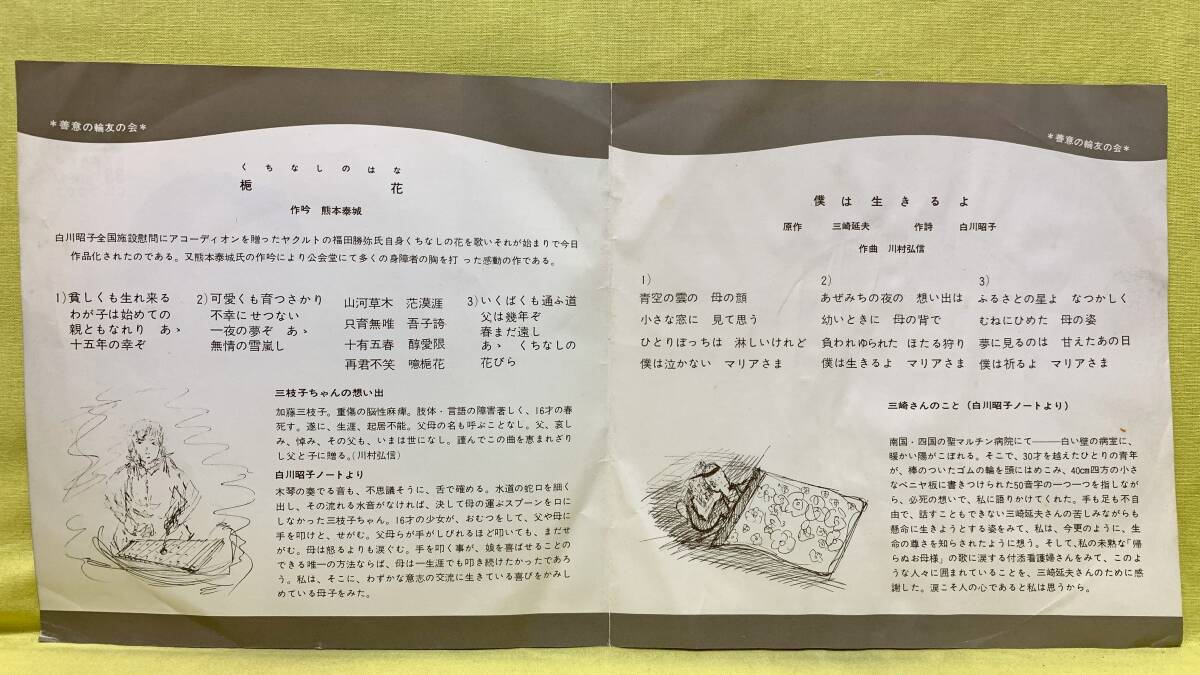 *善意の輪友の会*
くちなしのはな
梔 花
作吟 熊本泰城
白川昭子全国施設慰問にアコーディオンを贈ったヤクルトの福田勝弥氏自身くちなしの花を歌いそれが始まりで今日
作品化されたのである。又熊本泰城氏の作吟により公会堂にて多くの身障者の胸を打 った感動の作である。
1)貧しくも生れ来る
わが子は始めての
親ともなれり あゝ
十五年の幸ぞ
2)可愛くも育つさかり
不幸にせつない
一夜の夢ぞ あゝ
無情の雪嵐し
山河草木 茫漠涯
只育無唯 吾子誇
十有五春 醇愛限
再君不笑 噫梔花
3)いくばくも通ふ道
父は幾年ぞ
春まだ遠し
あゝ くちなしの
花びら
三枝子ちゃんの想い出
加藤三枝子。重傷の脳性麻痺。肢体・言語の障害著しく、16才の春
死す。遂に、生涯、起居不能。父母の名も呼ぶことなし。父、哀し
み、悼み、その父も、いまは世になし。謹んでこの曲を恵まれざり
し父と子に贈る。(川村弘信)
白川昭子ノートより
木琴の奏でる音も、不思議そうに、舌で確める。水道の蛇口を細く
出し、その流れる水音がなければ、決して母の運ぶスプーンを口に
しなかった三枝子ちゃん。16才の少女が、おむつをして、父や母に
手を叩けと、せがむ。父母らが手がしびれるほど叩いても、まだせ
がむ。母は怒るよりも涙ぐむ。手を叩く事が、娘を喜ばせることの
できる唯一の方法ならば、母は一生涯でも叩き続けたかったであろ
う。私は、そこに、わずかな意志の交流に生きている喜びをかみし
めている母子をみた。
*善意の輪友の会*
僕は生きるよ
原作 三崎延夫 作詩 白川昭子
作曲 川村弘信
1)
青空の雲の 母の顔
小さな窓に 見て思う
ひとりぼっちは 淋しいけれど
僕は泣かない マリアさま
2)
あぜみちの夜の 想い出は
幼いときに 母の背で
負われゆられた ほたる狩り
僕は生きるよ マリアさま
3)
ふるさとの星よ なつかしく
むねにひめた 母の姿
夢に見るのは 甘えたあの日
僕は祈るよ マリアさま
三崎さんのこと(白川昭子ノートより)
南国・四国の聖マルチン病院にて――白い壁の病室に、
暖かい陽がこぼれる。そこで、30才を越えたひとりの青年
が、棒のついたゴムの輪を頭にはめこみ、40cm四方の小さ
なベニヤ板に書きつけられた50音字の一つ一つを指しなが
ら、必死の想いで、私に語りかけてくれた。手も足も不自
由で、話すこともできない三崎延夫さんの苦しみながらも
懸命に生きようとする姿をみて、私は、今更のように、生
命の尊さを知らされたように想う。そして、私の未熟な「帰
らぬお母様」の歌に涙する付添看護婦さんをみて、このよ
うな人々に囲まれていることを、三崎延夫さんのために感
謝した。涙こそ人の心であると私は思うから。